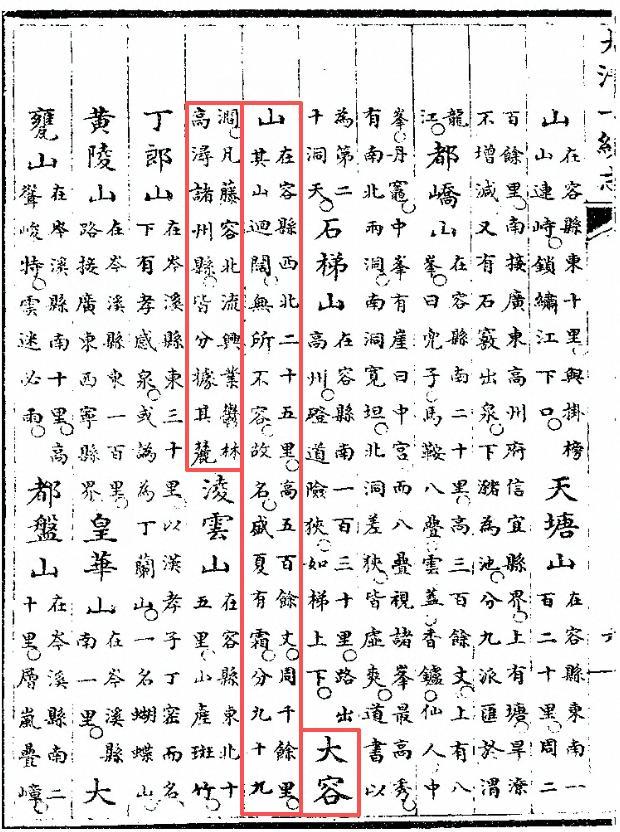 大清一統志
山在容縣東十里與掛榜山連峙鎖繡江下口天塘山在容縣東南一百二十里周二
百餘里南接廣東高州府信宜縣界上有塘旱潦不增減又有石竅出泉下瀦為池分九派匯於渭
龍江都嶠山在容縣南二十里高三百餘丈上有八峯曰兜子馬鞍八疊雲蓋香鑪仙人中
峯丹竈中峯有崖曰中宮而八疊視諸峯最高秀有南北兩洞南洞寬坦北洞差狹皆虛爽道書以
為第二十洞天石梯山在容縣南一百三十里路出高州磴道險狹如梯上下大容
山在容縣西北二十五里高五百餘丈周千餘里其山迴闊無所不容故名盛夏有霜分九十九
澗凡藤容北流興業鬱林高潯諸州縣皆分據其麓淩雲山在容縣東北十五里山產斑竹
丁郎山在岑溪縣東三十里以漢孝子丁密而名下有孝感泉或譌為丁蘭山一名蝴蝶山
黃陵山在岑溪縣東一百里路接廣東西寧縣界皇華山在岑溪縣南一里大
甕山在岑溪縣南十里高聳峻特雲迷必雨都盤山在岑溪縣南二十里層嵐疊嶂